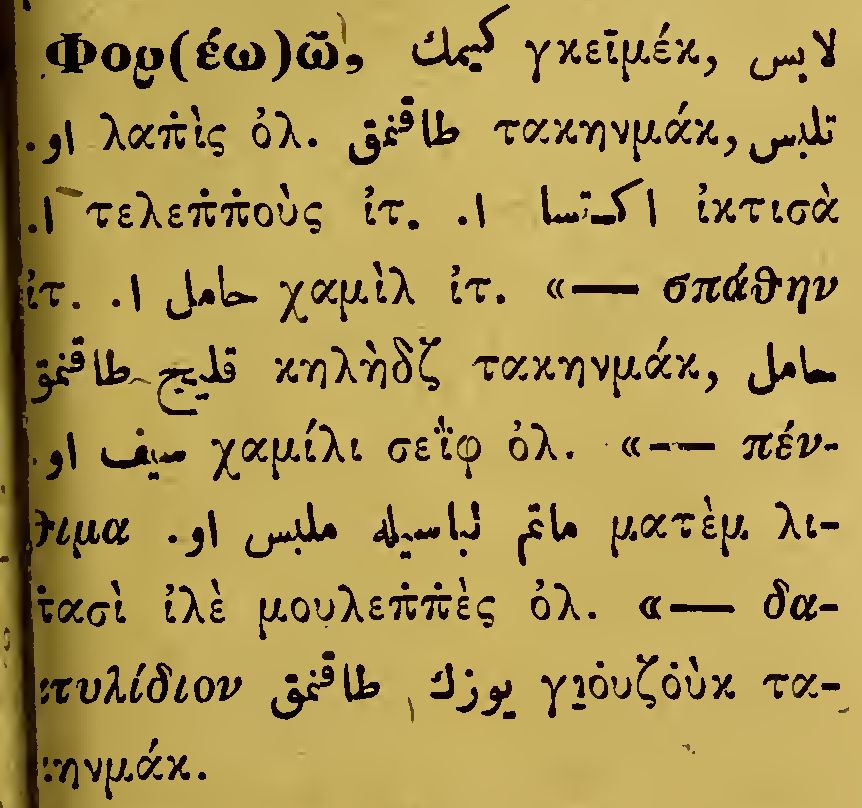 Φορ(έω)ῶ, كيمك γκεϊμέκ, لابس
او. λαπ̇ὶς ὀλ. طاقنمق τακηνμάκ, تلبس
ا. τελεπ̇π̇οὺς ἰτ. ا. اكتسا ἰκτισὰ
ἰτ. ا. حامل χαμὶλ ἰτ. «— σπάθην
قليج طاقنمق κηλὴδζ τακηνμάκ, حامل
سيف او. χαμίλι σεΐφ ὀλ. «— πέν-
θιμα ماتم لباسيله ملبس او. ματὲμ λι-
π̇ασὶ ἰλὲ μουλεπ̇π̇ὲς ὀλ. «— δα-
κτυλίδιον يوزك طاقنمق γιο̇υζο̇ὺκ τα-
κηνμάκ.